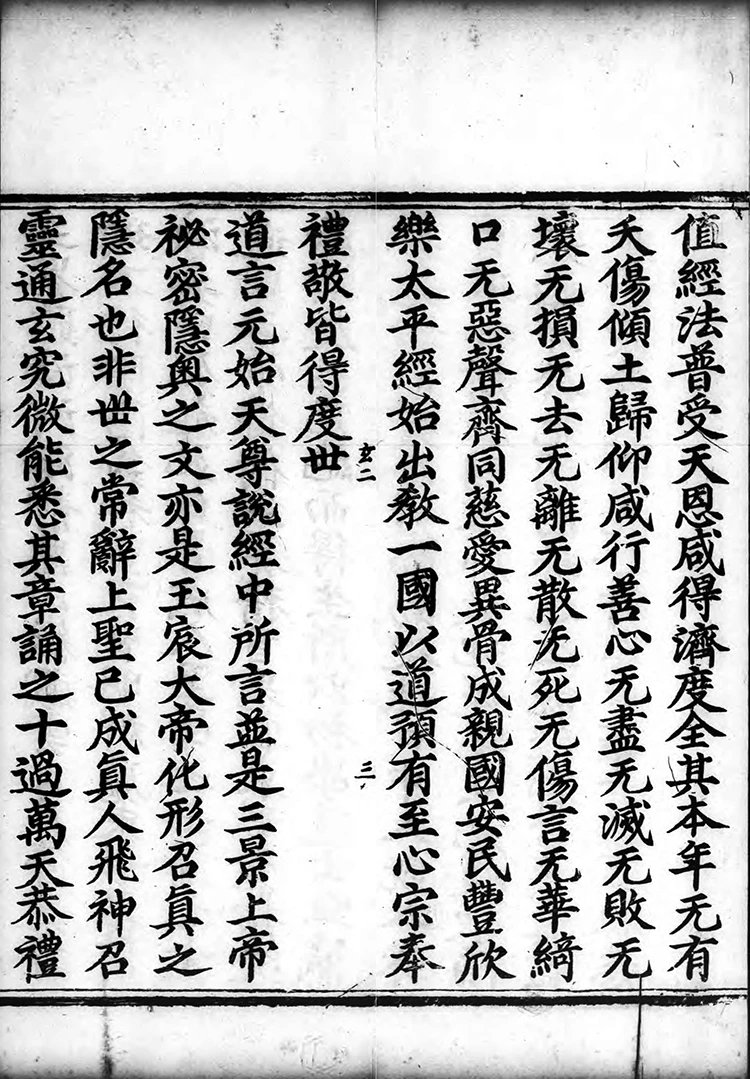 值經法普受天恩咸得濟度全其本年无有
夭傷傾土歸仰咸行善心无盡无滅无敗无
壞无損无去无離无散无死无傷言无華綺
口无惡聲齊同慈愛異骨成親國安民豐欣
樂太平經始出教一國以道預有至心宗奉
禮敬皆得度世
玄二
三
道言元始天尊說經中所言並是三景上帝
祕密隱奧之文亦是玉宸大帝化形召真之
隱名也非世之常辭上聖已成真人飛神召
靈通玄究微能悉其章誦之十過萬天恭禮